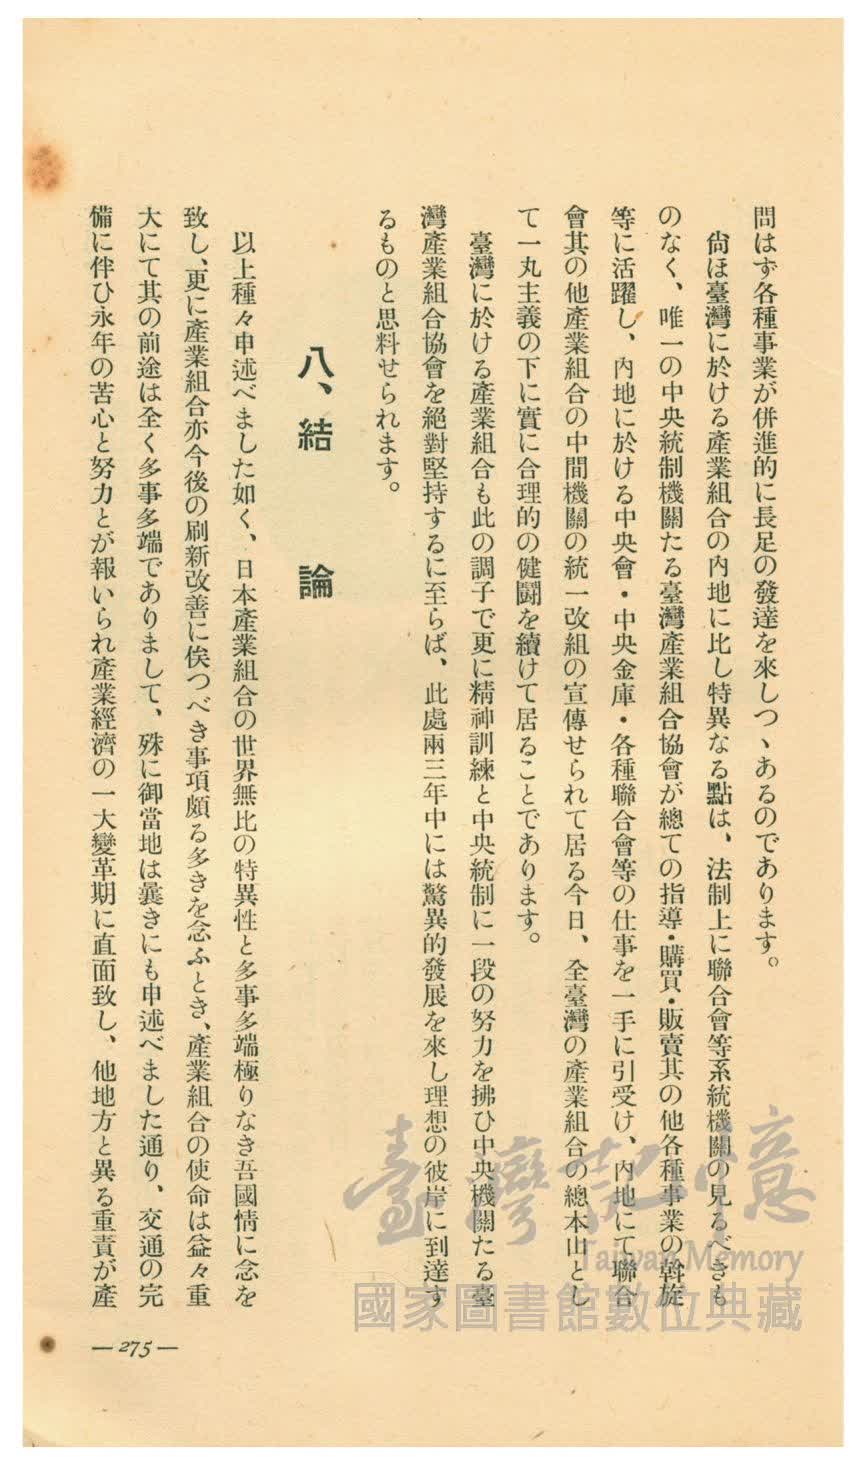 問はず各種事業が併進的に長足の發達を來しつゝあるのであります。
尙ほ臺灣に於ける產業組合の內地に比し特異なる點は、法制上に聯合會等系統機關の見るべきも
のなく、唯一の中央統制機關たる臺灣產業組合協會が總ての指導・購買・販賣其の他各種事業の斡旋
等に活躍し、內地に於ける中央會・中央金庫・各種聯合會等の仕事を一手に引受け、內地にて聯合
會其の他產業組合の中間機關の統一改組の宣傳せられて居る今日、全臺灣の產業組合の總本山とし
て一丸主義の下に實に合理的の健鬪を續けて居ることであります。
臺灣に於ける產業組合も此の調子で更に精神訓練と中央統制に一段の努力を拂ひ中央機關たる臺
灣產業組合協會を絕對堅持するに至らば、此處兩三年中には驚異的發展を來し理想の彼岸に到達す
るものと思料せられます。
八、結論
以上種々申述べました如く、日本產業組合の世界無比の特異性と多事多端極りなき吾國情に念を
致し、更に產業組合亦今後の刷新改善に俟つべき事項頗る多きを念ふとき、產業組合の使命は益々重
大にて其の前途は全く多事多端でありまして、殊に御當地は曩きにも申述べました通り、交通の完
備に伴ひ永年の苦心と努力とが報いられ產業經濟の一大變革期に直面致し、他地方と異る重責が產
—275—
臺灣記憶
Taiwan Memory
國家圖書館數位典藏